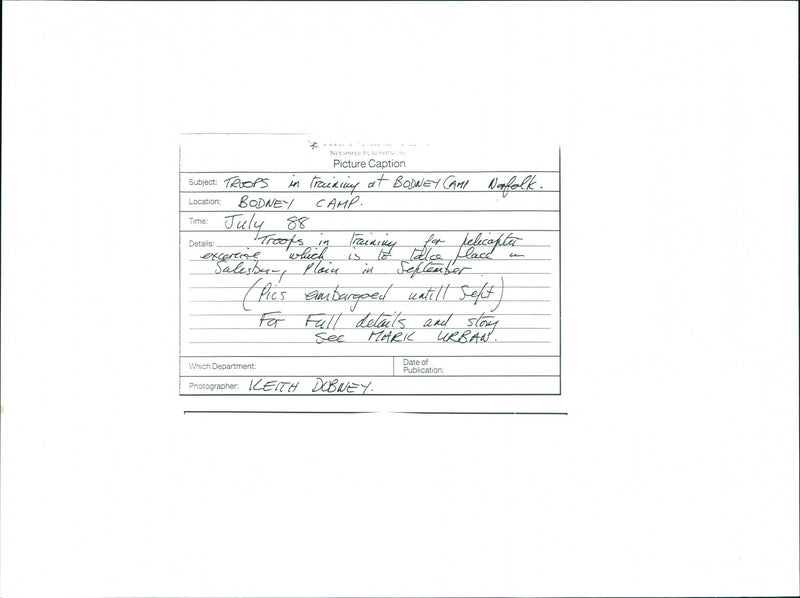 NEWSPAPER PUBLISHING PLC
Picture Caption
Subject: TROOPS in training at BODNEY CAMP Norfolk.
Location: BODNEY CAMP.
Time: July 88
Details: Troops in training for helicopter
excercise which is to take place in
Salesbury Plain in September
(Pics embargoed untill Sept)
For Full details and story
see MARK URBAN.
Which Department:
Date of
Publication:
Photographer: KEITH DOBNEY.